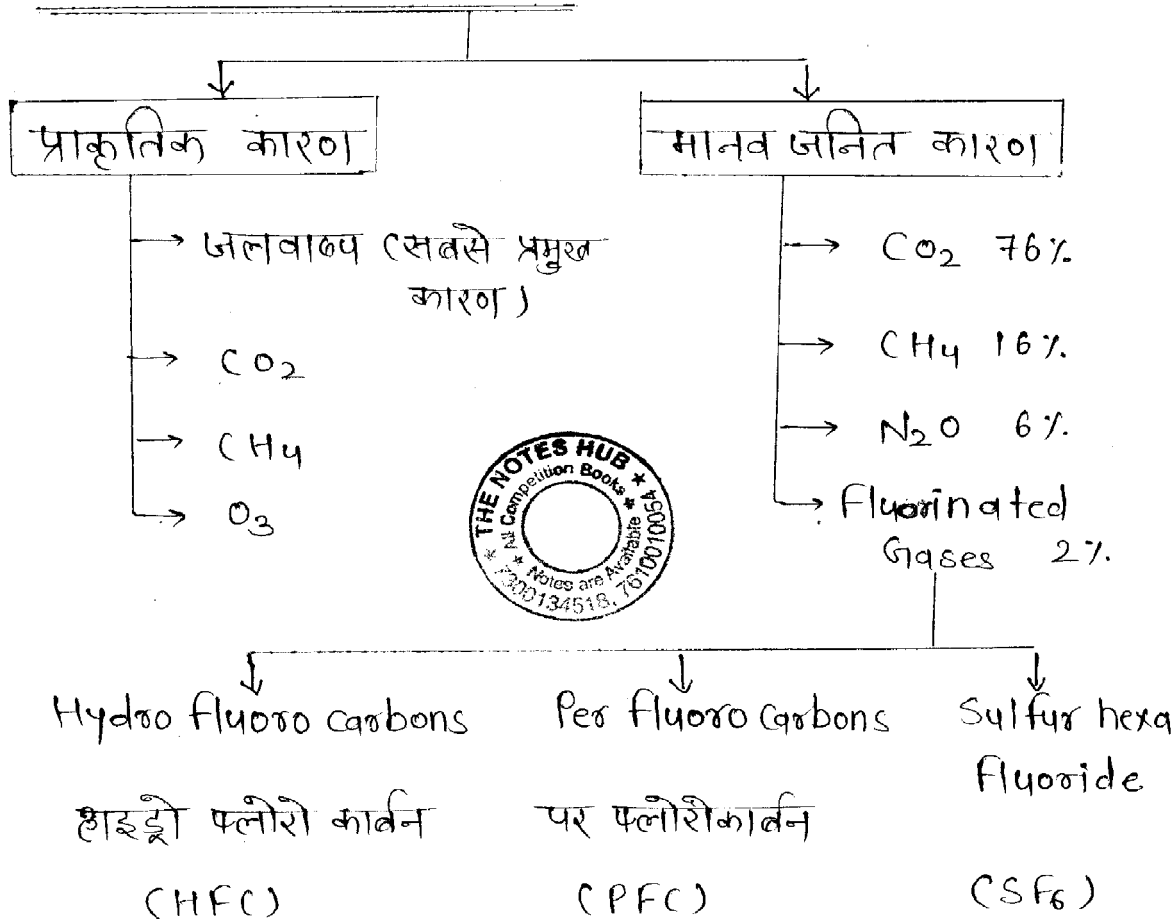 प्राकृतिक कारण
मानव जनित कारण
→ जलवाष्प (सबसे प्रमुख
कारण)
→ CO₂
→ CH₄
→ O₃
→ CO₂ 76%
→ CH₄ 16%
→ N₂O 6%
→ Fluorinated
Gases 2%
THE NOTES HUB
All Competition Books
Notes are Available
7300134518, 7610010054
Hydro fluoro carbons
हाइड्रो फ्लोरो कार्बन
(HFC)
Per fluoro carbons
पर फ्लोरोकार्बन
(PFC)
Sulfur hexa
fluoride
(SF₆)